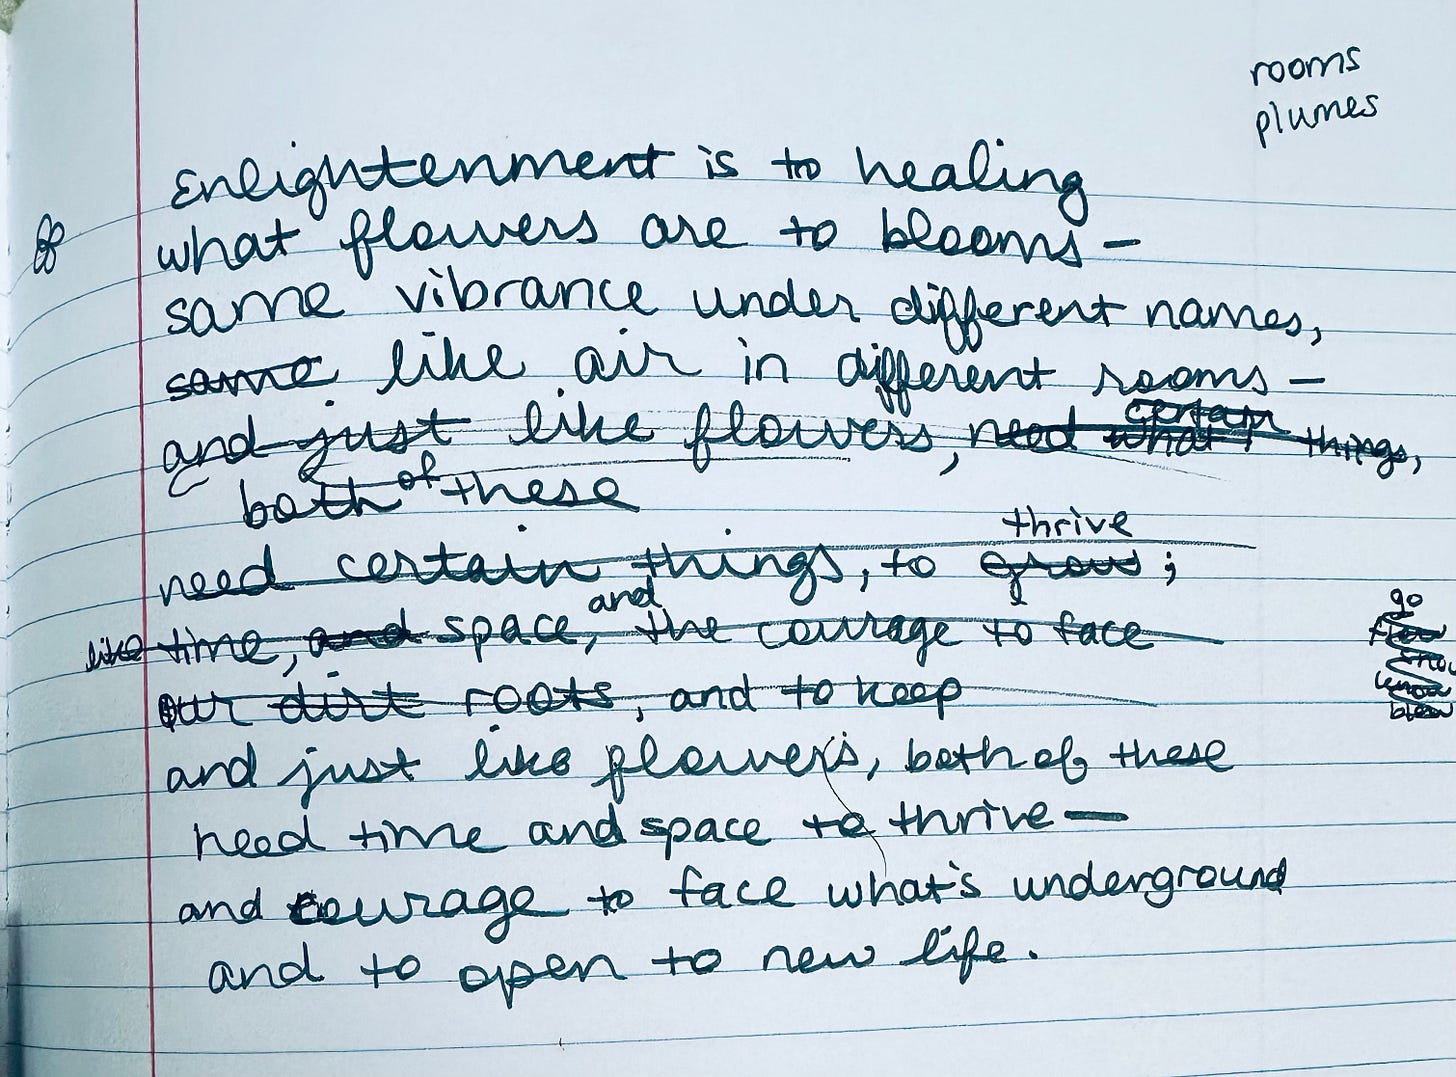 rooms
plumes
Enlightenment is to healing
what flowers are to blooms –
same vibrance under different names,
same like air in different rooms –
and just like flowers, need what certain things,
both of these
need certain things, to grow thrive;
like time, and space, and the courage to face
our dirt roots, and to keep
and just like flowers, both of these
need time and space to thrive —
and courage to face what's underground
and to open to new life.
go
flow
know
blow